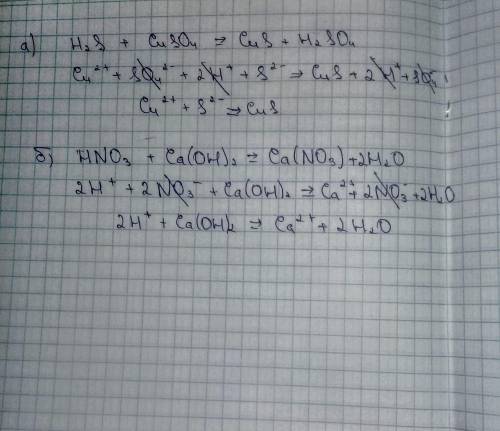 а) H₂S + CuSO₄ = CuS + H₂SO₄
Cu²⁺ + SO₄²⁻ + 2H⁺ + S²⁻ = CuS + 2H⁺ + SO₄
Cu²⁺ + S²⁻ = CuS
б) HNO₃ + Ca(OH)₂ = Ca(NO₃) + 2H₂O
2H⁺ + 2NO₃⁻ + Ca(OH)₂ = Ca²⁺ + 2NO₃⁻ + 2H₂O
2H⁺ + Ca(OH)₂ = Ca²⁺ + 2H₂O